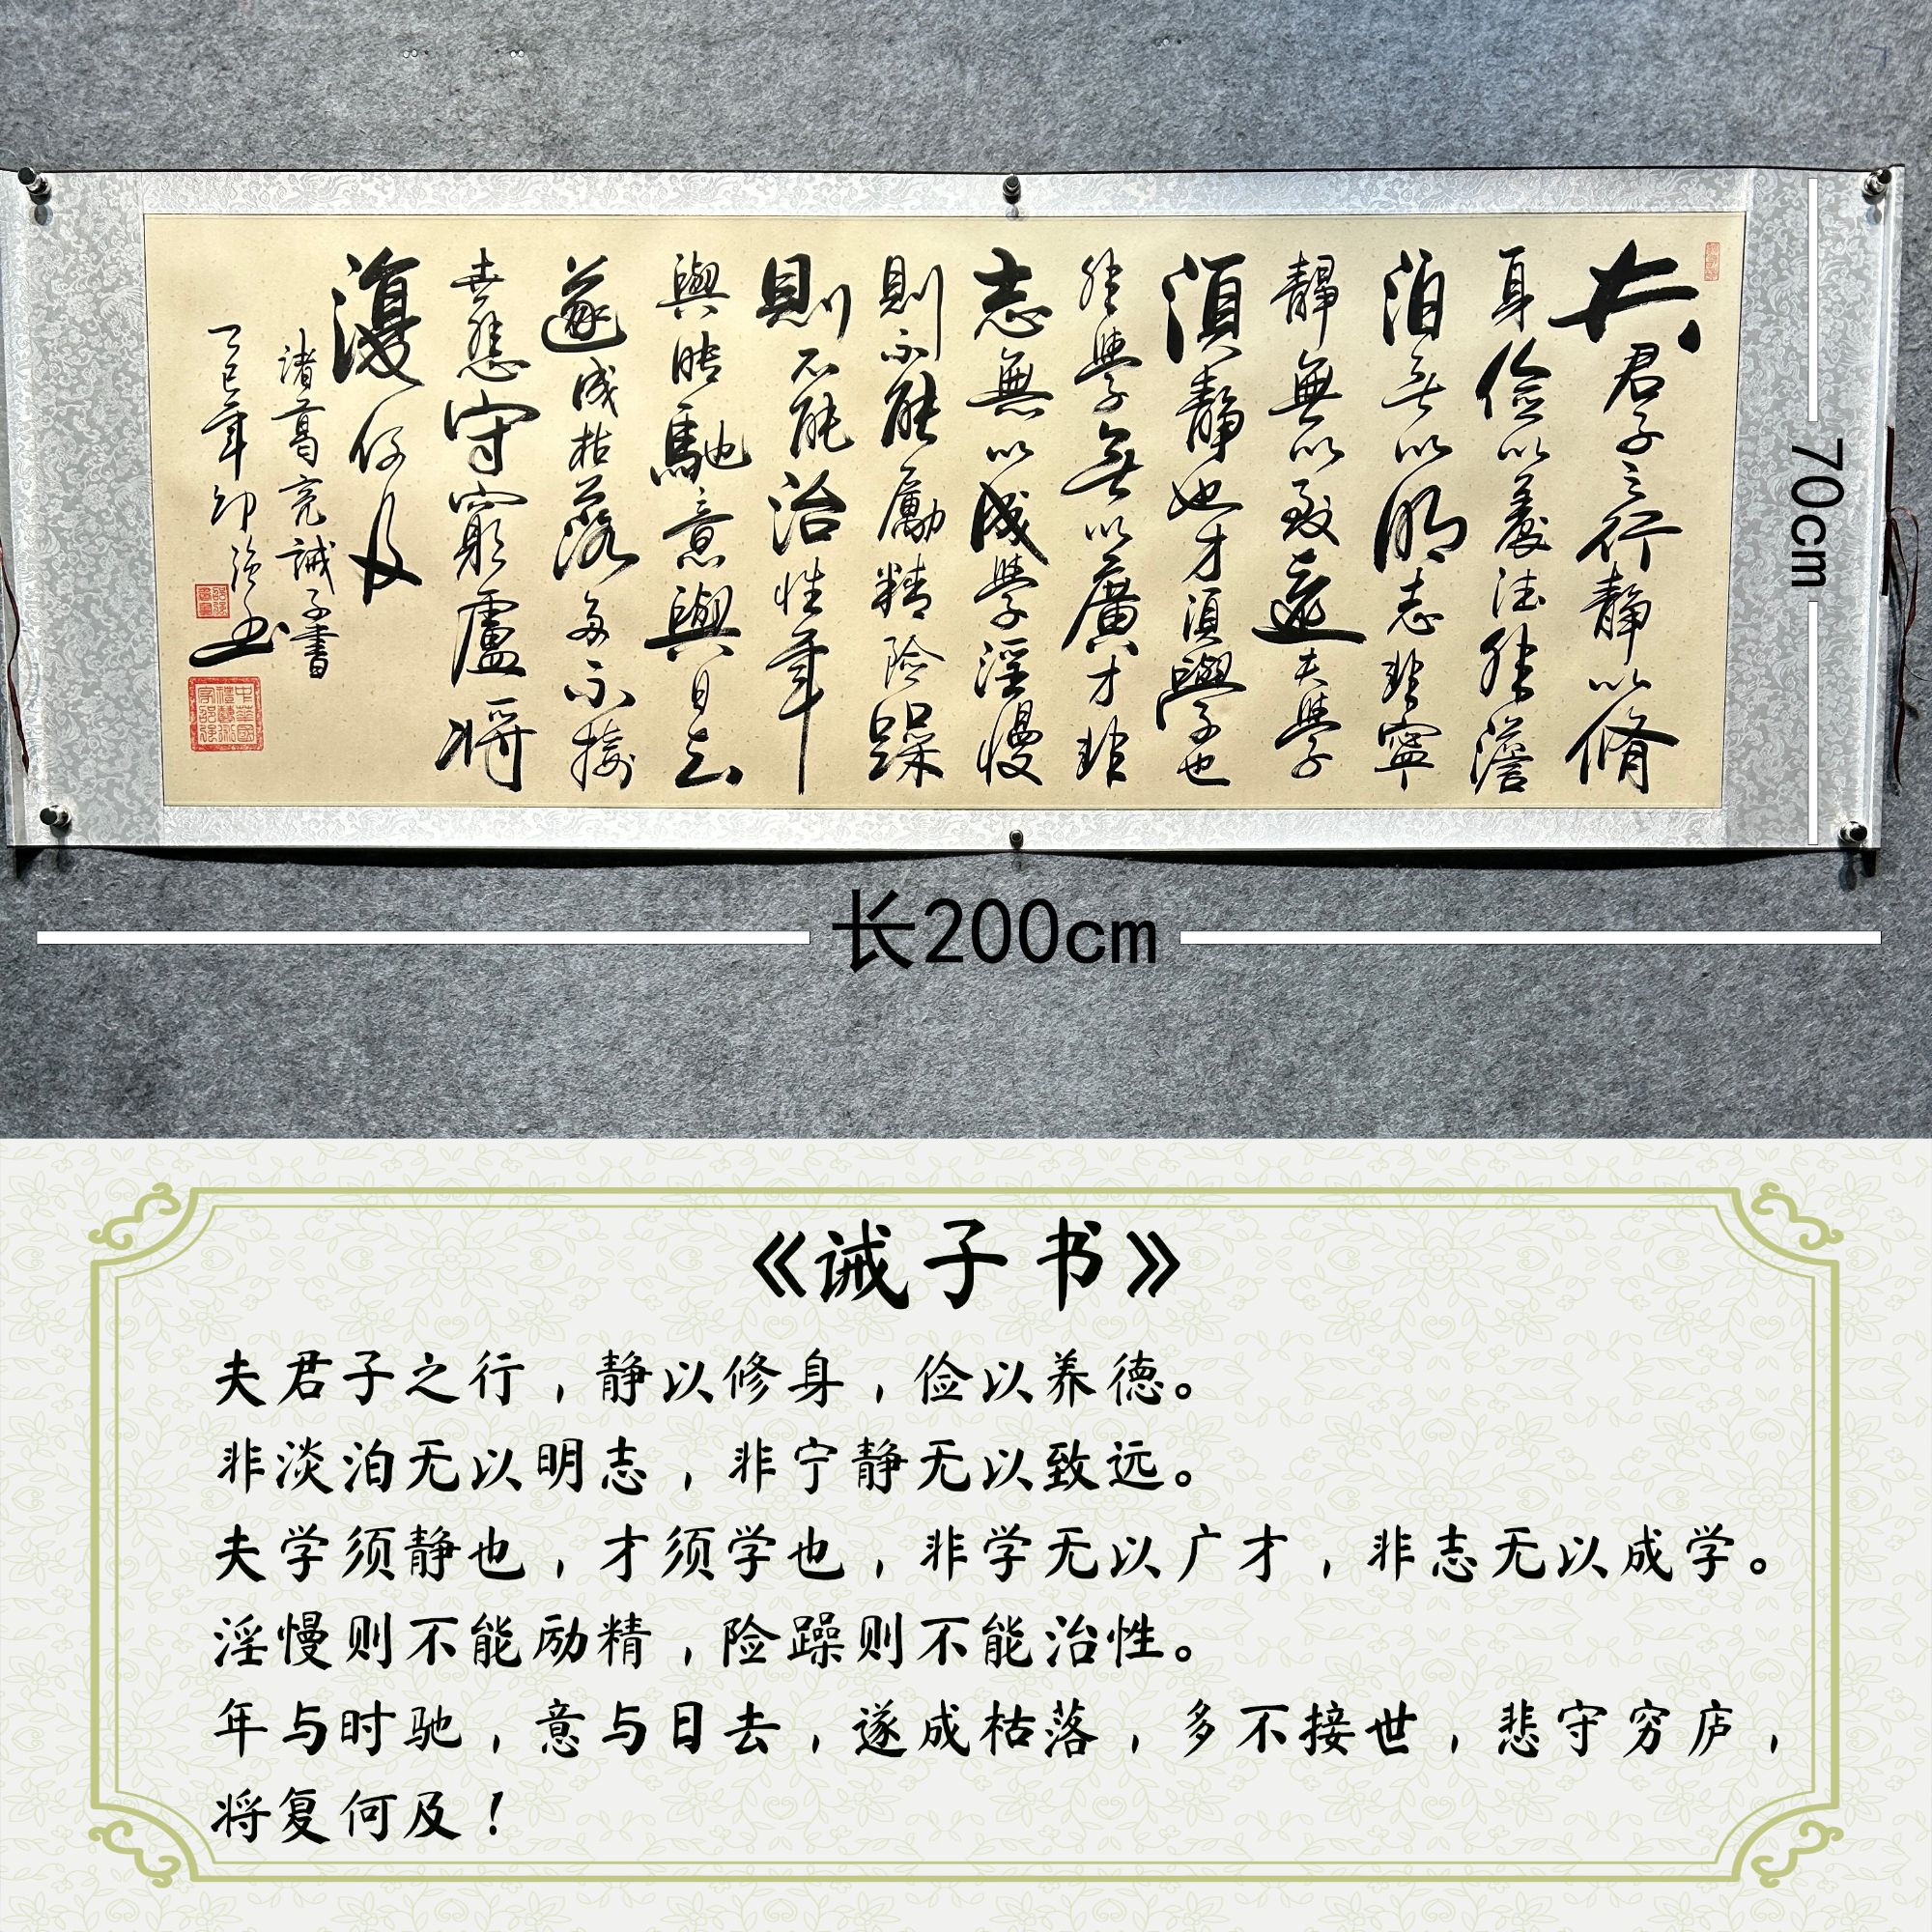 夫君子之行静以脩
身儉以養德非澹
泊無以明志非寧
靜無以致遠夫學
須静也才須學也
非學無以廣才非
志無以成學淫慢
則不能勵精險躁
則不能治性年
與時馳意與日去
遂成枯落多不接
世悲守窮廬將
復何及
諸葛亮誡子書
乙巳年邵强书
中華國禮藝術家邵强
70cm
长200cm
《诫子书》
夫君子之行，静以修身，俭以养德。
非淡泊无以明志，非宁静无以致远。
夫学须静也，才须学也，非学无以广才，非志无以成学。
淫慢则不能励精，险躁则不能治性。
年与时驰，意与日去，遂成枯落，多不接世，悲守穷庐，
将复何及！